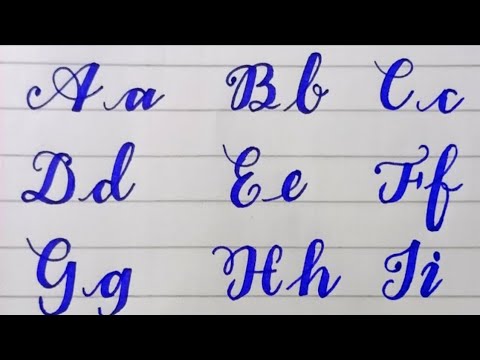 Aa Bb Cc
Dd Ee Ff
Gg Hh Ii